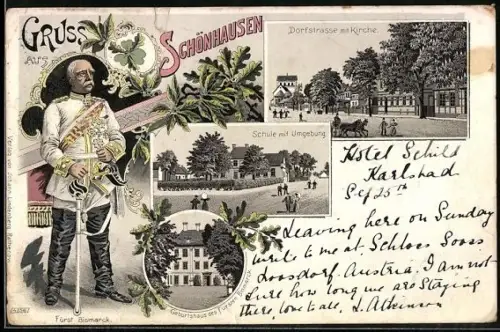 GRUSS
AUS
SCHÖNHAUSEN
Dorfstrasse mit Kirche.
Schule mit Umgebung
Geburtshaus des Fürsten Bismarck.
Fürst Bismarck.
Hotel Schild
Karlsbad
Sep 25th
Leaving here on Sunday
write to me at Schloss Sooss
Loosdorf. Austria. I am not
sure how long we are staying
there, love to all, L. Atkinson